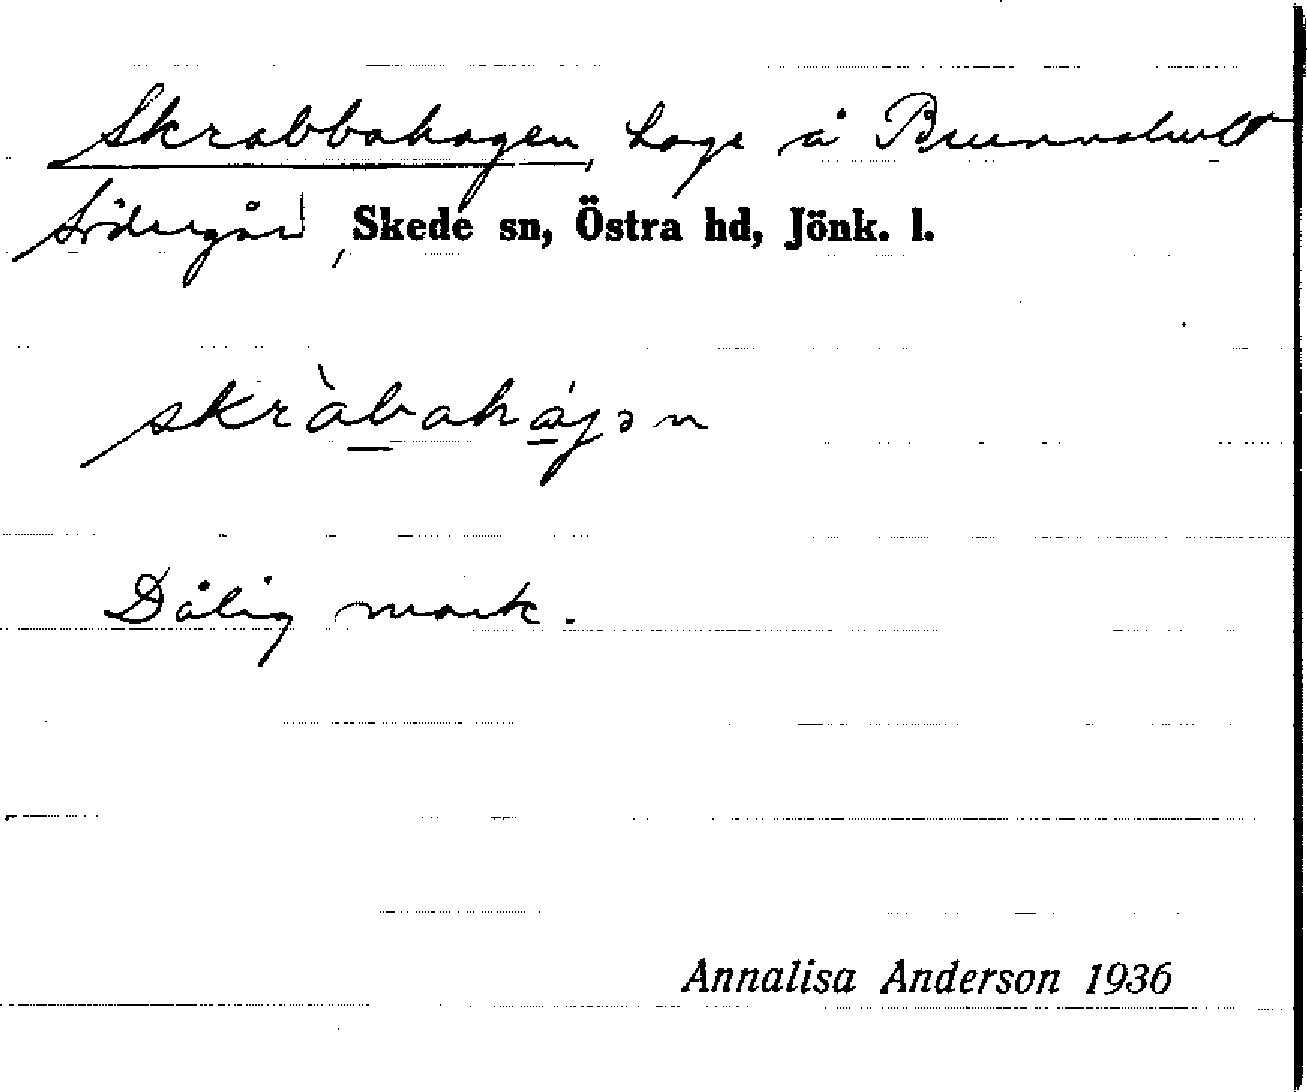 Skrabbahagen, hage å Brunnshult
Södergård, Skede sn, Östra hd, Jönk. l.
skràbahágən
Dålig mark.
Annalisa Anderson 1936